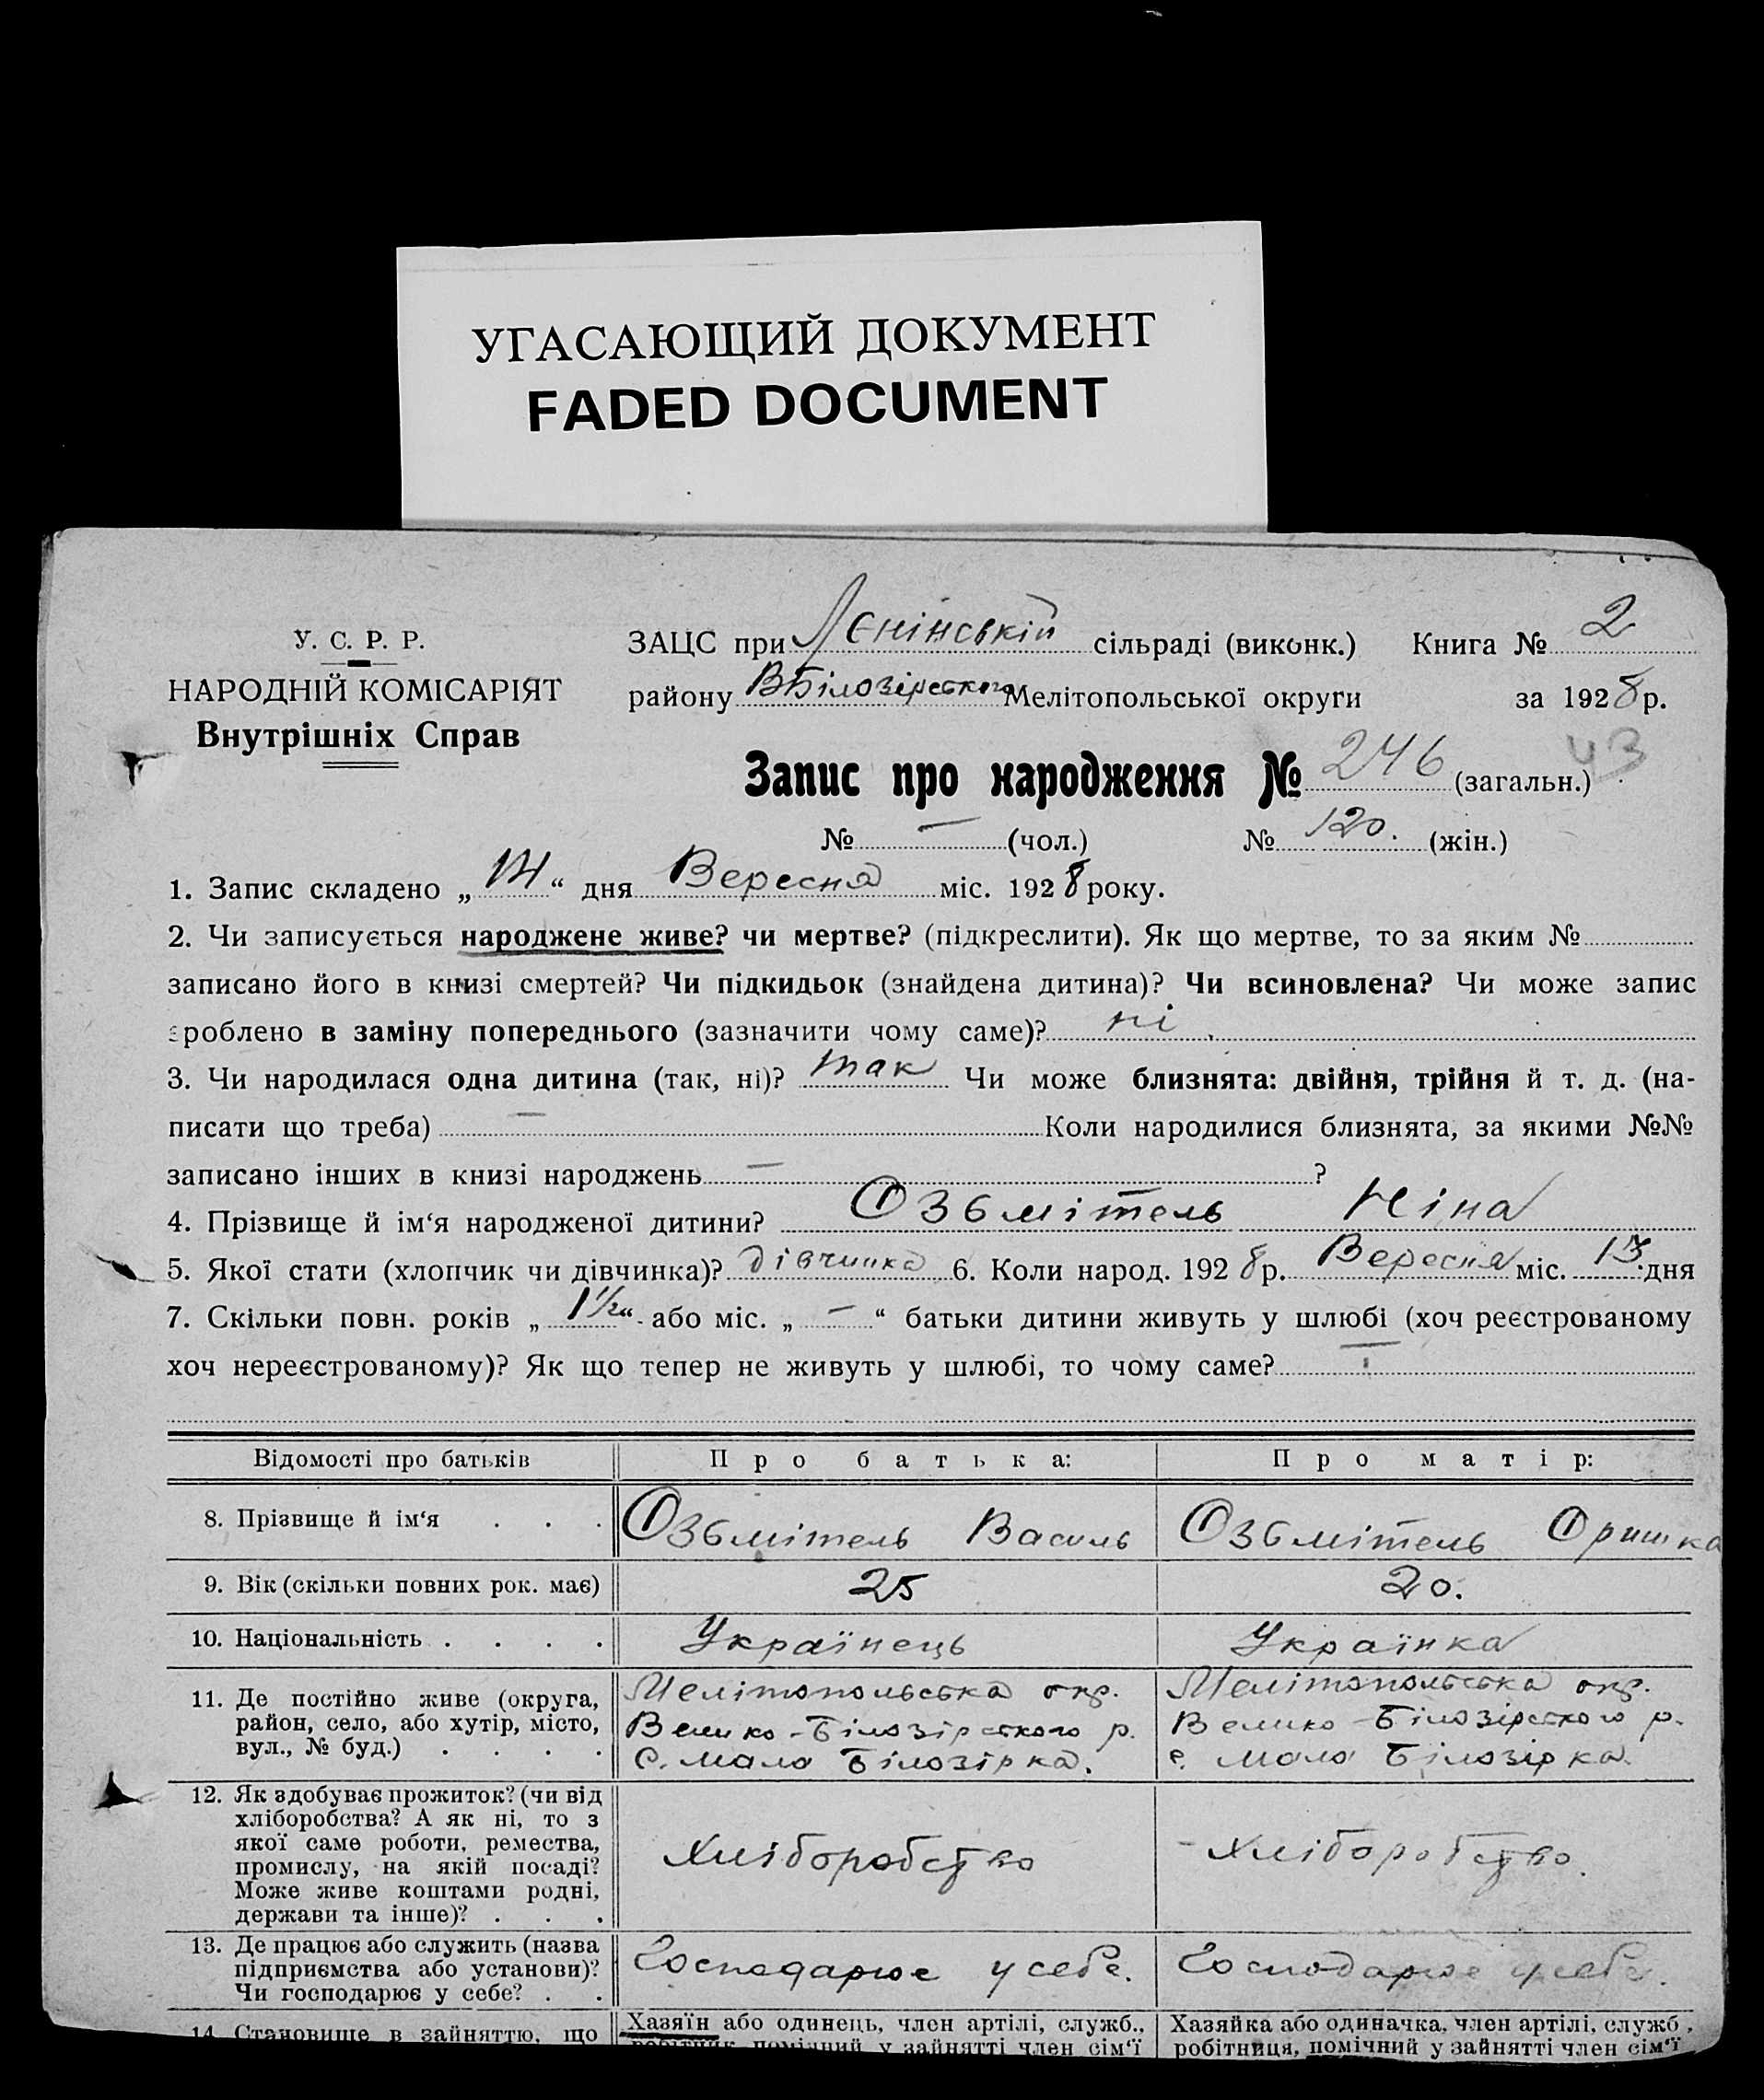 УГАСАЮЩИЙ ДОКУМЕНТ
FADED DOCUMENT
У. С. Р. Р.
НАРОДНІЙ КОМІСАРІЯТ
Внутрішніх Справ
ЗАЦС при Лєнінській сільраді (виконк.) Книга № 2
району ВБілозірського Мелітопольської округи за 1928 р.
43
Запис про народження № 246 (загальн.)
№ — (чол.) № 120. (жін.)
1. Запис складено „ “ дня Вересня міс. 1928 року.
2. Чи записується народжене живе? чи мертве? (підкреслити). Як що мертве, то за яким №
записано його в книзі смертей? Чи підкидьок (знайдена дитина)? Чи всиновлена? Чи може запис
зроблено в заміну попереднього (зазначити чому саме)? ні
3. Чи народилася одна дитина (так, ні)? так Чи може близнята: двійня, трійня й т. д. (на-
писати що треба) — Коли народилися близнята, за якими №№
записано інших в книзі народжень — ?
4. Прізвище й ім‘я народженої дитини? Озбмітель Ніна
5. Якої стати (хлопчик чи дівчинка)? дівчинка 6. Коли народ. 1928 р. Вересня міс. 13 дня
7. Скільки повн. років „ 1 1/2 “ або міс. „ — “ батьки дитини живуть у шлюбі (хоч реєстрованому
хоч нереєстрованому)? Як що тепер не живуть у шлюбі, то чому саме? —
Відомості про батьків Про батька: Про матір:
8. Прізвище й ім‘я . . . Озбмітель Василь Озбмітель Оришка
9. Вік (скільки повних рок. має) 25 20.
10. Національність . . . . Українець Українка
11. Де постійно живе (округа,
район, село, або хутір, місто,
вул., № буд.) . . . .
Мелітопольська окр.
Велико-Білозірського р.
с. мала Білозірка.
Мелітопольська окр.
Велико-Білозірського р.
с. мала Білозірка.
12. Як здобуває прожиток? (чи від
хліборобства? А як ні, то з
якої саме роботи, ремества,
промислу, на якій посаді?
Може живе коштами родні,
держави та інше)? . . .
Хліборобство
Хліборобство.
13. Де працює або служить (назва
підприємства або установи)?
Чи господарює у себе? . .
Господарює у себе.
Господарює у себе.
14. Становище в зайняттю, що
Хазяїн або одинець, член артілі, служб.,
робітник, помічний у зайнятті член сім‘ї
Хазяйка або одиначка, член артілі, служб.,
робітниця, помічний у зайнятті член сім‘ї